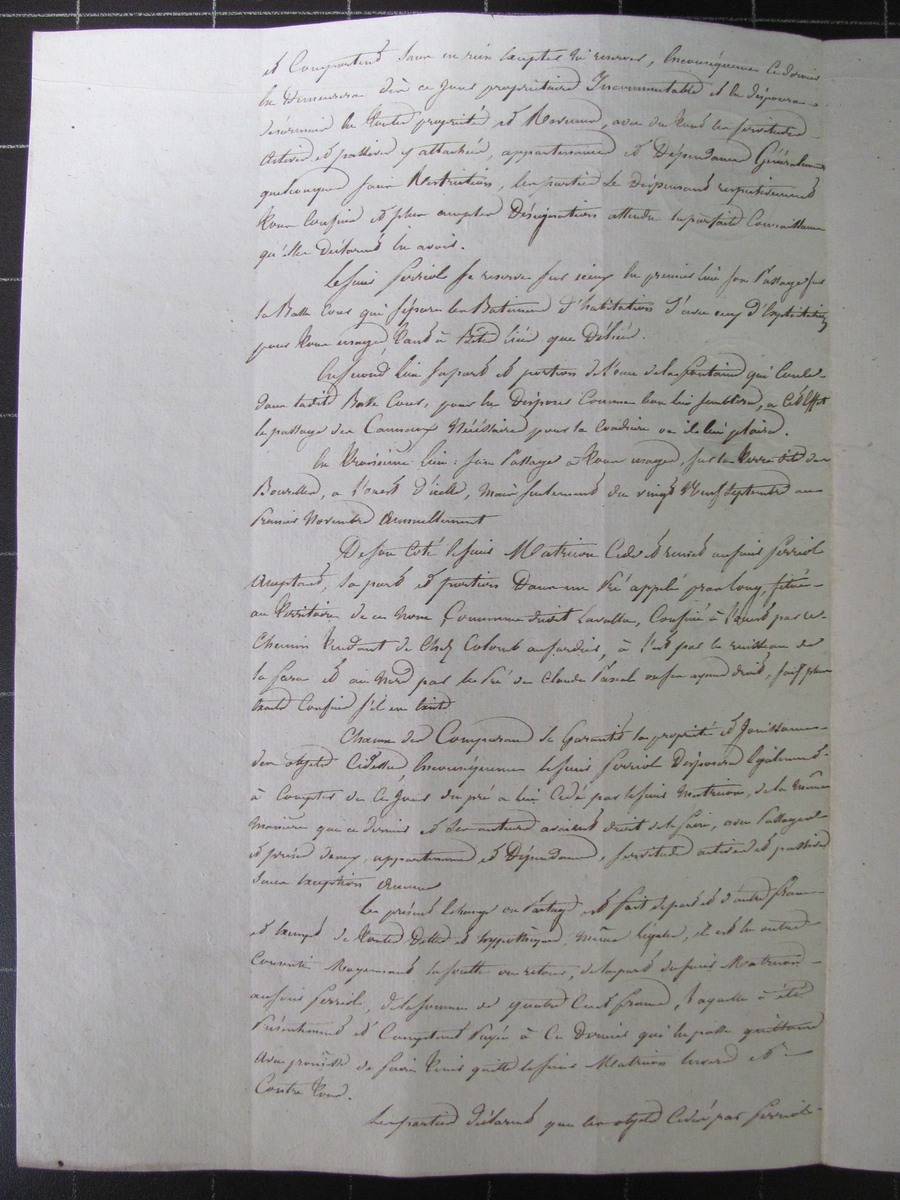 et Comportent sans en rien Excepter ni reserver, Enconséquence Ce dernier
En Demeurera dès ce Jour propriétaire Incommutable et En disposera
désormais En toute propriété et Revenus, avec En tous les servitudes
Actives et passives y attachées, appartenances et Dépendances Générallement
quelconques sans Restrictions, Les parties se dispensant respectivement
tous Confins et plus amples Désignations attendu la parfaite Connaissance
qu'elles Déclarent En avoir.
Le sieur ferriol se reserve sur iceux En premier lieu son Passage sur
la Basse Cour qui sépare les Batiments d'habitations d'avec ceux d'Exploitation
pour tous usages tant à Bêtes liées que Déliées.
En second lieu sa part et portion de l'eau de la fontaine qui Coule
dans ladite Basse Cour, pour En Disposer Comme bon lui semblera, a Cet Effet
le passage des Canneaux Nécéssaires pour la Conduire où il lui plaira.
En troisième lieu : son Passage a tous usages, sur la terre dite des
a l'ouest d'icelle, mais seulement du vingt Neuf septembre au
Premier Novembre Annuellement
De son Coté le sieur Matricon Cede et remet au sieur ferriol
Acceptant, sa part et portion Dans un Pré appelé pra long, situé
au Territoire de ce nom Commune dudit Lavalla, Confiné à l'ouest par le
Chemin Tendant de Chez Colomb au à l'est par le ruisseau de
la et au Nord par le Pré de Claude Pascal ou son ayant droit, sauf plus
Exacts Confins s'il en Existe
Chacun des Comparans se Garantit la propriété et Jouissance
des objets Cidessus, Enconséquence le sieur ferriol Disposera Egalement
à Compter de Ce Jour du pré a lui Cédé par le sieur Matricon, de la même
Manière que ce dernier et ses auteurs avaient droit de le faire, avec Passages
et prises d'eaux, appartenances et Dépendances, servitudes actives et passives
Sans Exception Aucune
Le présent Echange ou Partage est fait de part et d'autre franc
et Exempt de toutes Dettes et hypothèques, même légales, il est En outre
Consenti Moyennant la soulte ou retour, de la part du sieur Matricon
au sieur ferriol, de la somme de quatre Cent francs, Laquelle à été
Présentement et Comptant Payée à Ce Dernier qui En passe quittance
Avec promesse de faire Tenir quitte le sieur Matricon Envers et
Contre tous.
Les parties déclarent que les objets Cédés par ferriol